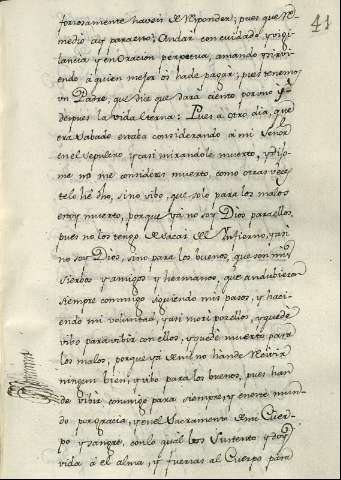 41
tuosamente haveis de Responder; pues que Re-
medio ay para esto; Andar con cuidado y vigi-
lancia y en Oracion perpetua, amando y sirvi-
endo à quien mejor os hade pagar; pues tenemos
un Padre, que dice que darà ciento por uno y
despues la vida Eterna: Pues à otro dia, que
erà Sabado estaba considerando à mi Señor
en el sepulcro, y casi mirandole muerto, y dijo-
me no me consideres muerto, como otras veces
te lo hè dho, sino vibo, que solo para los malos
estoy muerto, porque ya no soy Dios para ellos,
pues no los tengo de sacar del Infierno, y asi
no soy Dios, sino para los buenos, que son mis
sierbos y amigos y hermanos, que andubieron
siempre conmigo siguiendo mis pasos, y haci-
endo mi voluntad, y asi morí por ellos, y quedè
vibo para vibir con ellos, y quedè muerto para
los malos, porque ya de mi no hànde Recivir
ningun bien, y vibo para los buenos, pues han
de vibir conmigo para siempre, y en este mun-
do por gracia, y en el Sacramento de mi Cuer-
po y sangre, con lo qual los sustento y doy
vida à el alma, y fuerzas al Cuerpo para